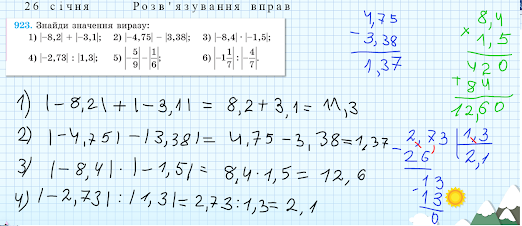 26 січня Розв'язування вправ
923. Знайди значення виразу:
1) |−8,2| + |−3,1|; 2) |−4,75| − |3,38|; 3) |−8,4| · |−1,5|;
4) |−2,73| : |1,3|; 5) |−5/9| − |1/6|; 6) |−1 1/7| : |−4/7|.
4,75
− 3,38
1,37
8,4
× 1,5
420
+ 84
12,60
1) |−8,2| + |−3,1| = 8,2 + 3,1 = 11,3
2) |−4,75| − |3,38| = 4,75 − 3,38 = 1,37
3) |−8,4| · |−1,5| = 8,4 · 1,5 = 12,6
4) |−2,73| : |1,3| = 2,73 : 1,3 = 2,1
2,73 | 1,3
− 26 2,1
13
− 13
0